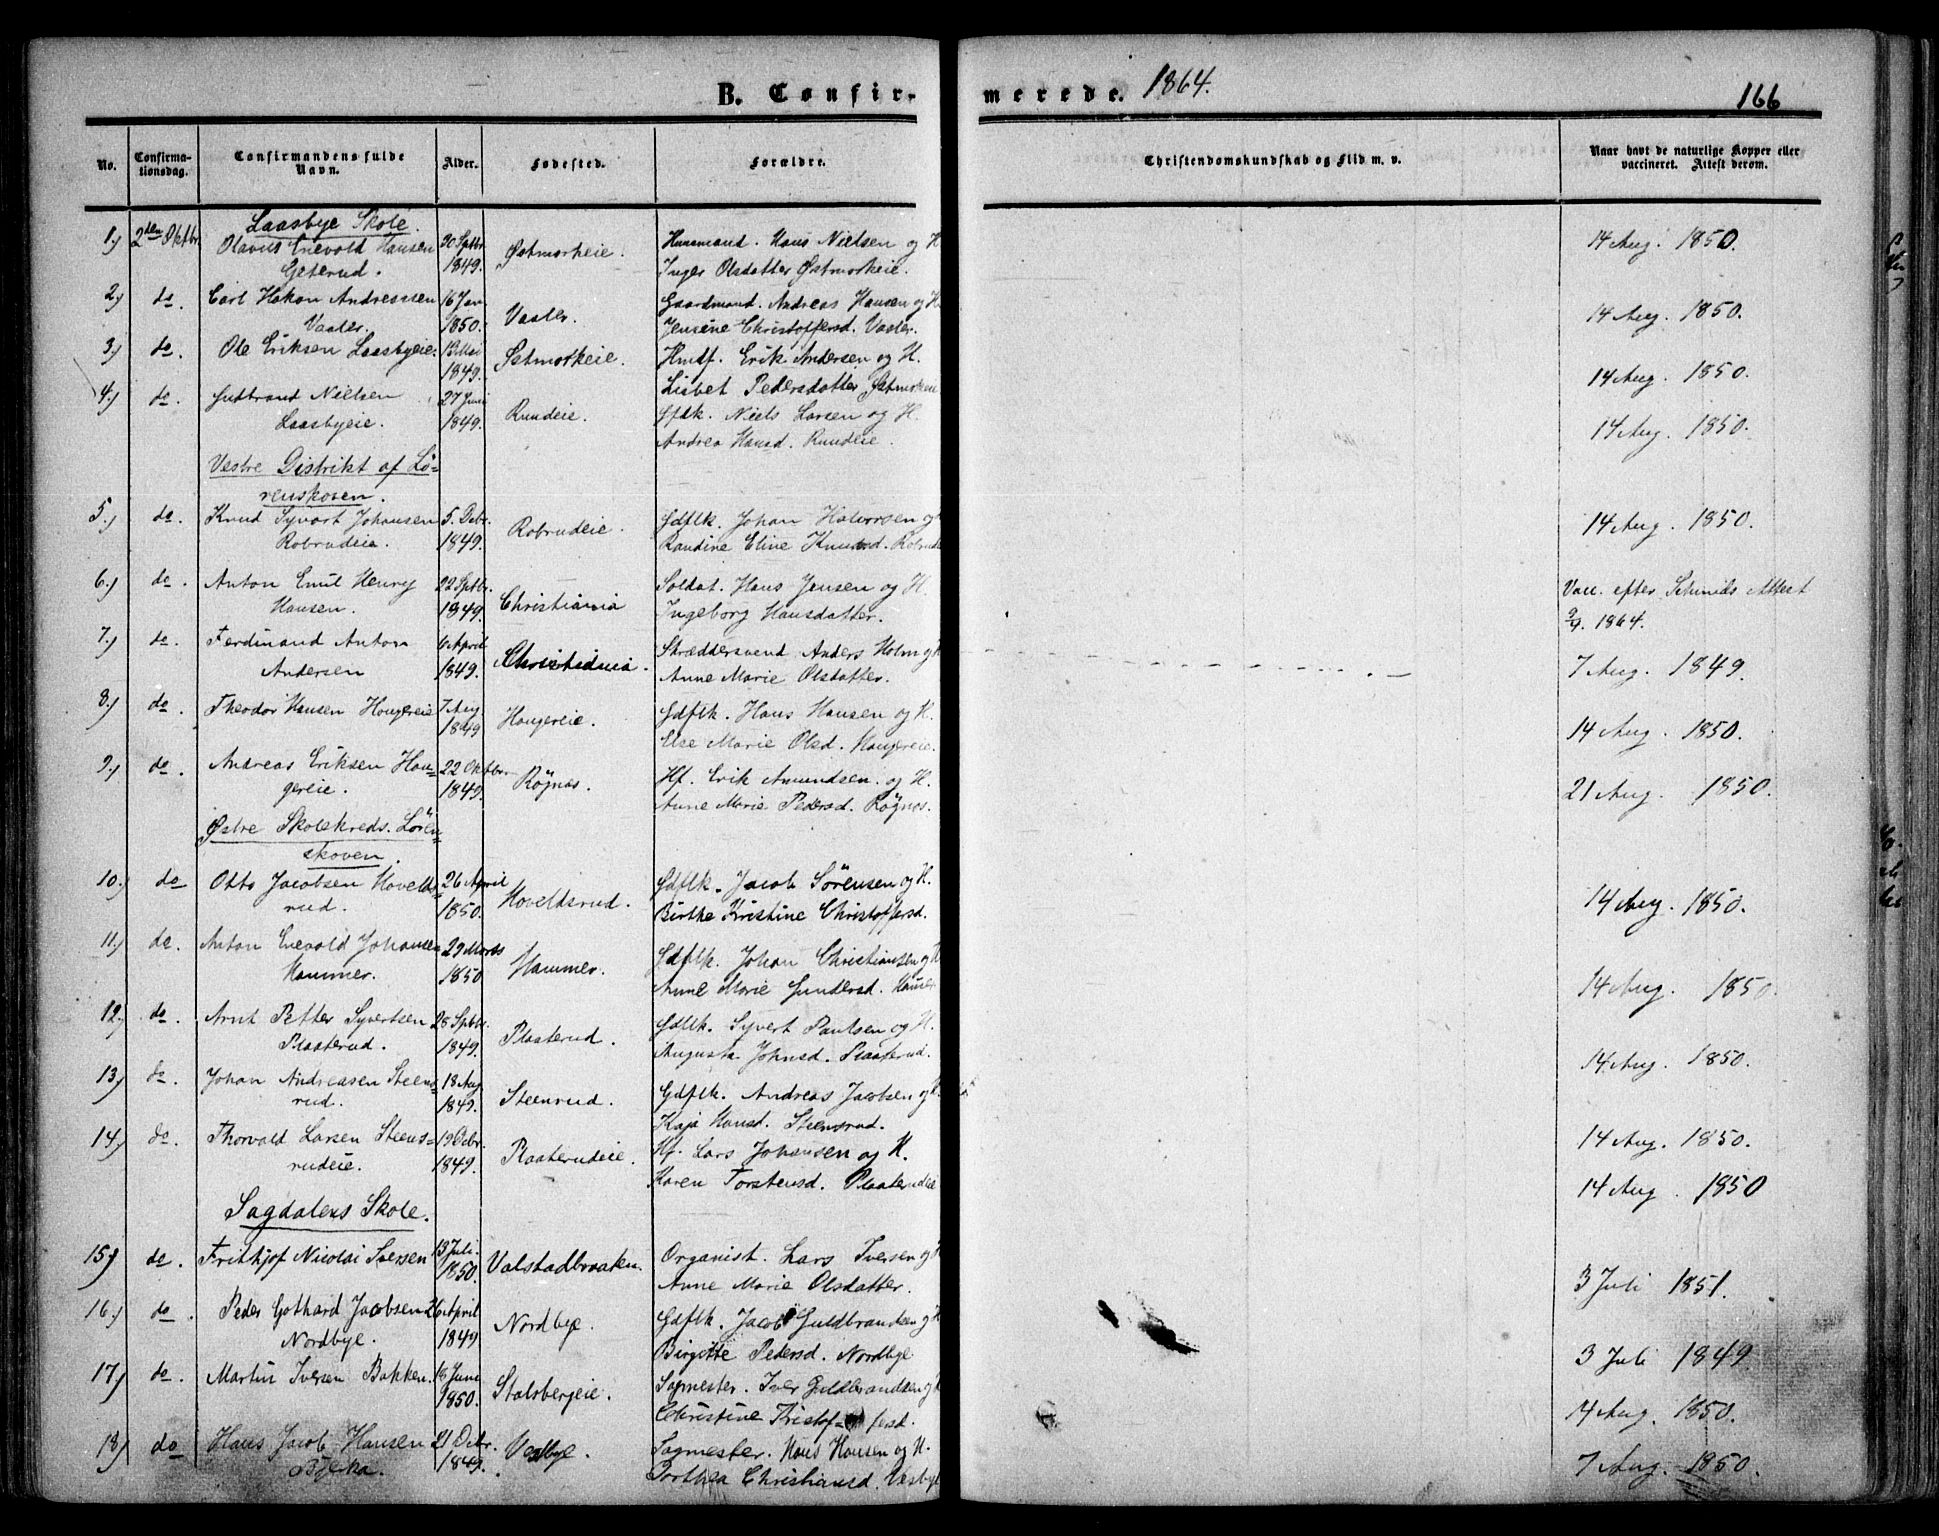 B. Confir-
merede. 1864.
166
No.
Confirma-
tionsdag.
Confirmandens fulde
Navn.
Alder.
Fødested.
Forældre.
Christendomskundskab og Flid m. v.
Naar havt de naturlige Kopper eller
vaccineret. Attest derom.
Laasbye Skole.
1.) 2den Oktbr. Olavus Enevold Hansen 20 Sptbr. Østmorkeie. Huusmand. Hans Nielsen og H. 14 Aug. 1850.
Geterud. 1849. Inger Olsdatter Østmorkeie.
2.) do. Carl Hakon Andresssen 16 Jan. Vaater. Gaardmand. Andreas Hansen og H. 14 Aug. 1850.
Vaater. 1850. Jensine Christoffersd. Vaater.
3.) do. Ole Eriksen Laasbyeie. 13 Mai Østmorkeie Hmdf. Erik Andersen og H. 14 Aug. 1850.
1849. Lisbet Pedersdatter Østmorkeie
4.) do. Gudbrand Nielsen 27 Juni Rundeie. Gflk. Niels Larsen og H. 14 Aug. 1850.
Laasbyeie. 1849. Andrea Hansd. Rundeie.
Vestre Distrikt af Lö-
renskoven.
5.) do. Knud Syvart Johansen 5. Decbr. Robrudeie. Gdflk. Johan Halvorsen og 14 Aug. 1850.
Robrudeie. 1849. Randine Eline Knudsd. Robrude
6.) do. Anton Emil Henry 22 Sptbr. Christiania Soldat. Hans Jensen og H. Vacc. efter Schmids Attest
Hansen. 1849. Ingeborg Hansdatter. 2/9. 1864.
7.) do. Ferdinand Anton April Christiania. Skræddersvend Anders Holm og H. 7 Aug. 1849.
Andersen 1849. Anne Marie Olsdatter.
8.) do. Theodor Hansen Hougereie 7 Aug Hougereie. Gdflk. Hans Hansen og H. 14 Aug. 1850.
1849 Else Marie Olsd. Hougereie.
9.) do. Andreas Eriksen Hou- 22 Oktbr. Røgnas. Hf. Erik Amundsen. og H. 21 Aug. 1850.
gereie. 1849. Anne Marie Pedersd. Røgnas.
Østre Skolekreds. Lören-
skoven.
10.) do Otto Jacobsen Hovelds- 26 April Hoveldsrud. Gdflk. Jacob Sörensen og H. 14 Aug. 1850.
rud. 1850. Birthe Kristine Christoffersd.
11.) do. Anton Enevold Johansen 29 Marts Hammer. Gdflk. Johan Christiansen og H 14 Aug. 1850.
Hammer. 1850 Anne Marie Gundersd. Hamer
12.) do. Arnt Petter Syvertsen 28 Sptbr. Plaaterud. Gdflk. Syvert Paulsen og H. 14 Aug. 1850.
Plaaterud. 1849. Augusta Johnsd. Plaaterud.
13.) do. Johan Andreasen Steens- 18 Aug. Steenrud. Gdflk. Andreas Jacobsen og H. 14 Aug. 1850.
rud. 1849. Kaja Hansd. Steensrud.
14.) do. Thorvald Larsen Steens- 19 Octbr. Plaaterudeie. Hf. Lars Johansen og H. 14 Aug. 1850
rudeie. 1849. Karen Torstensd. Plaaterudeie
Sagdalens Skole.
15.) do. Frithjof Nicolai Iversen 13 Juli. Valstadbraaten. Organist. Lars Iversen og H 3 Juli 1851.
1850. Anne Marie Olsdatter.
16.) do. Peder Gothard Jacobsen 26 April Nordbye. Gdflk. Jacob Guldbrandsen og H 3 Juli 1849
Nordbye. 1849 Birgitte Pedersd. Nordbye
17.) do. Martin Iversen Bakken. 16 Juni Stalsbergeie. Sagmester. Iver Guldbrandsen og H 14 Aug. 1850.
1850. Christine Kristof- fersd.
18.) do Hans Jacob Hansen 21 Octbr. Vesbye. Sagmester. Hans Hansen og H. 7 Aug. 1850.
Bjerka. 1849. Dorthea Christiansd. Vesbye